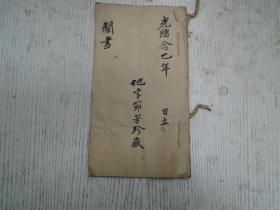 光緒念乙年
日立
地字號芳珍藏
鬮書